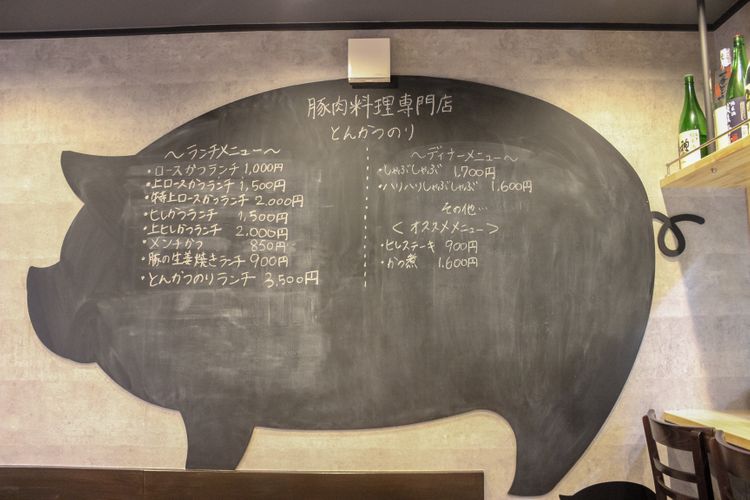 豚肉料理専門店
とんかつのり
～ランチメニュー～
・ロースかつランチ 1,000円
・上ロースかつランチ 1,500円
・特上ロースかつランチ 2,000円
・ヒレかつランチ 1,500円
・上ヒレかつランチ 2,000円
・メンチかつ 850円
・豚の生姜焼きランチ 900円
・とんかつのりランチ 3,500円
～ディナーメニュー～
・しゃぶしゃぶ 1,700円
・ハリハリしゃぶしゃぶ 1,600円
その他…
＜オススメメニュー＞
・ヒレステーキ 900円
・かつ煮 1,600円